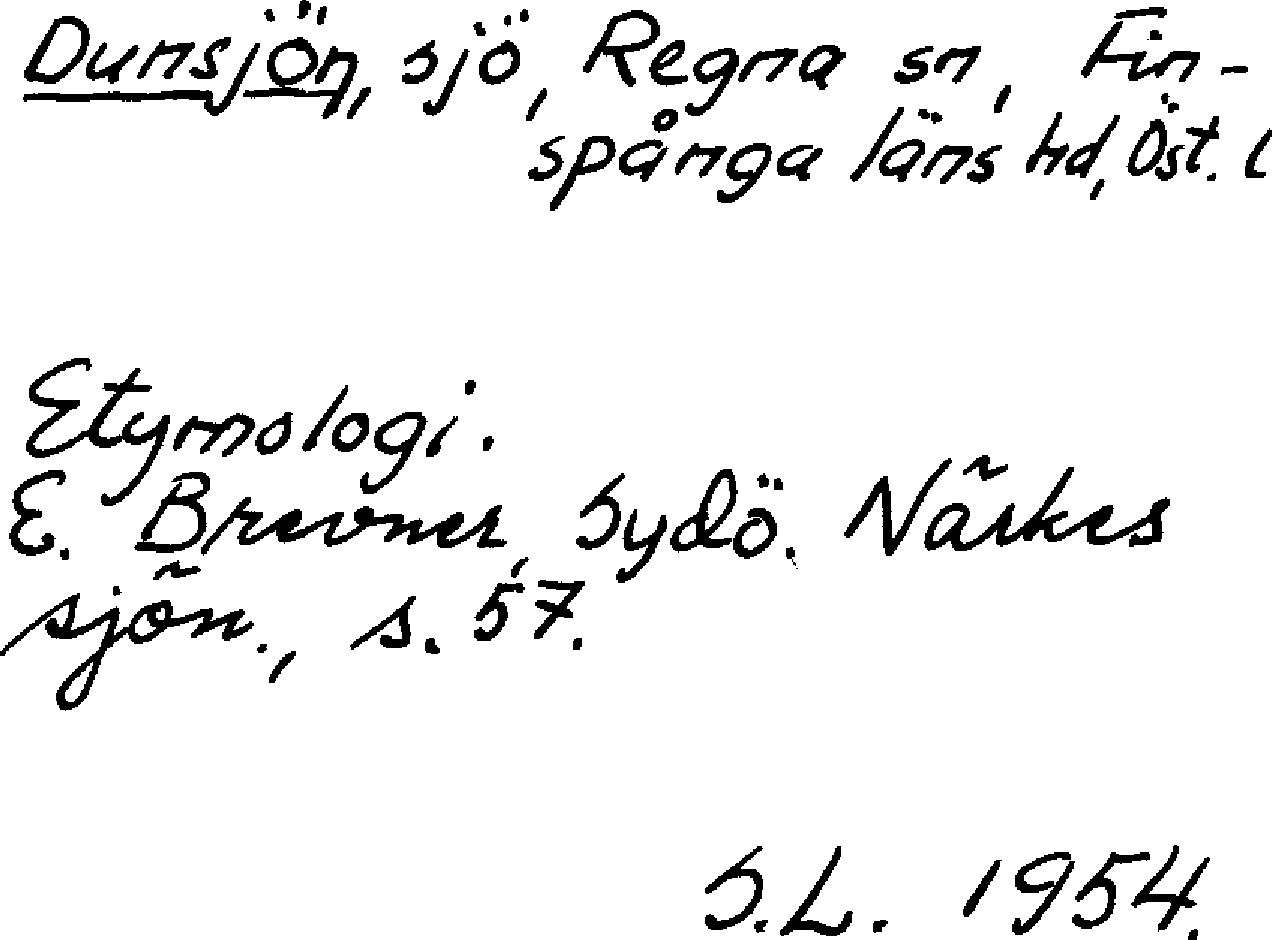 Dunsjön, sjö, Regna sn, Fin-
spånga läns hd, Öst. l
Etymologi.
E. Brevner, Sydö. Närkes
sjön., s. 57.
S.L. 1954.